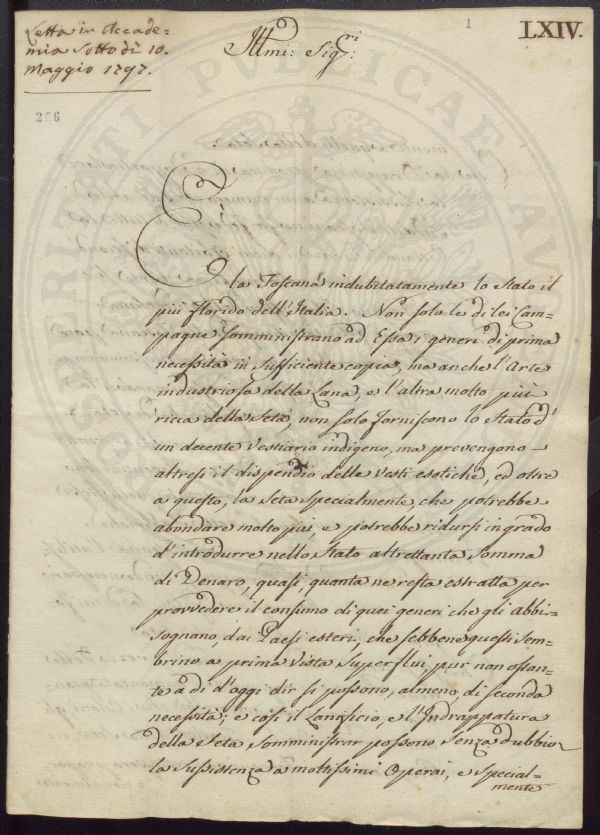 Letta in Accade-
mia Sotto dì 10.
Maggio 1797.
1
LXIV.
Illmi: Sigri:
266
È la Toscana indubitatamente lo Stato il
più florido dell'Italia. Non solo le di lei Cam-
pagne somministrano ad Essa i generi di prima
necessità in sufficiente copia, ma anche l'Arte
industriosa della Lana, e l'altra molto più
ricca della Seta, non solo forniscono lo Stato d'
un decente vestiario indigeno, ma prevengono
altresì il dispendio delle vesti esotiche, ed oltre
a questo, la Seta specialmente, che potrebbe
abondare molto più, e potrebbe ridursi in grado
d'introdurre nello Stato altrettanta Somma
di Denaro, quasi, quanta ne resta estratta per
provvedere il consumo di quei generi che gli abbi-
sognano, dai Paesi esteri, che sebbene questi Sem-
brino a prima vista Superflui, pur non ostan-
te a dì d'oggi dir si possono, almeno, di seconda
necessità; e così il Lanificio, e l'Indrappatura
della Seta somministrar possono senza dubbio
la Sussistenza a moltissimi Operai, e special-
mente
PROSPERITATI PUBLICAE AUGENDAE